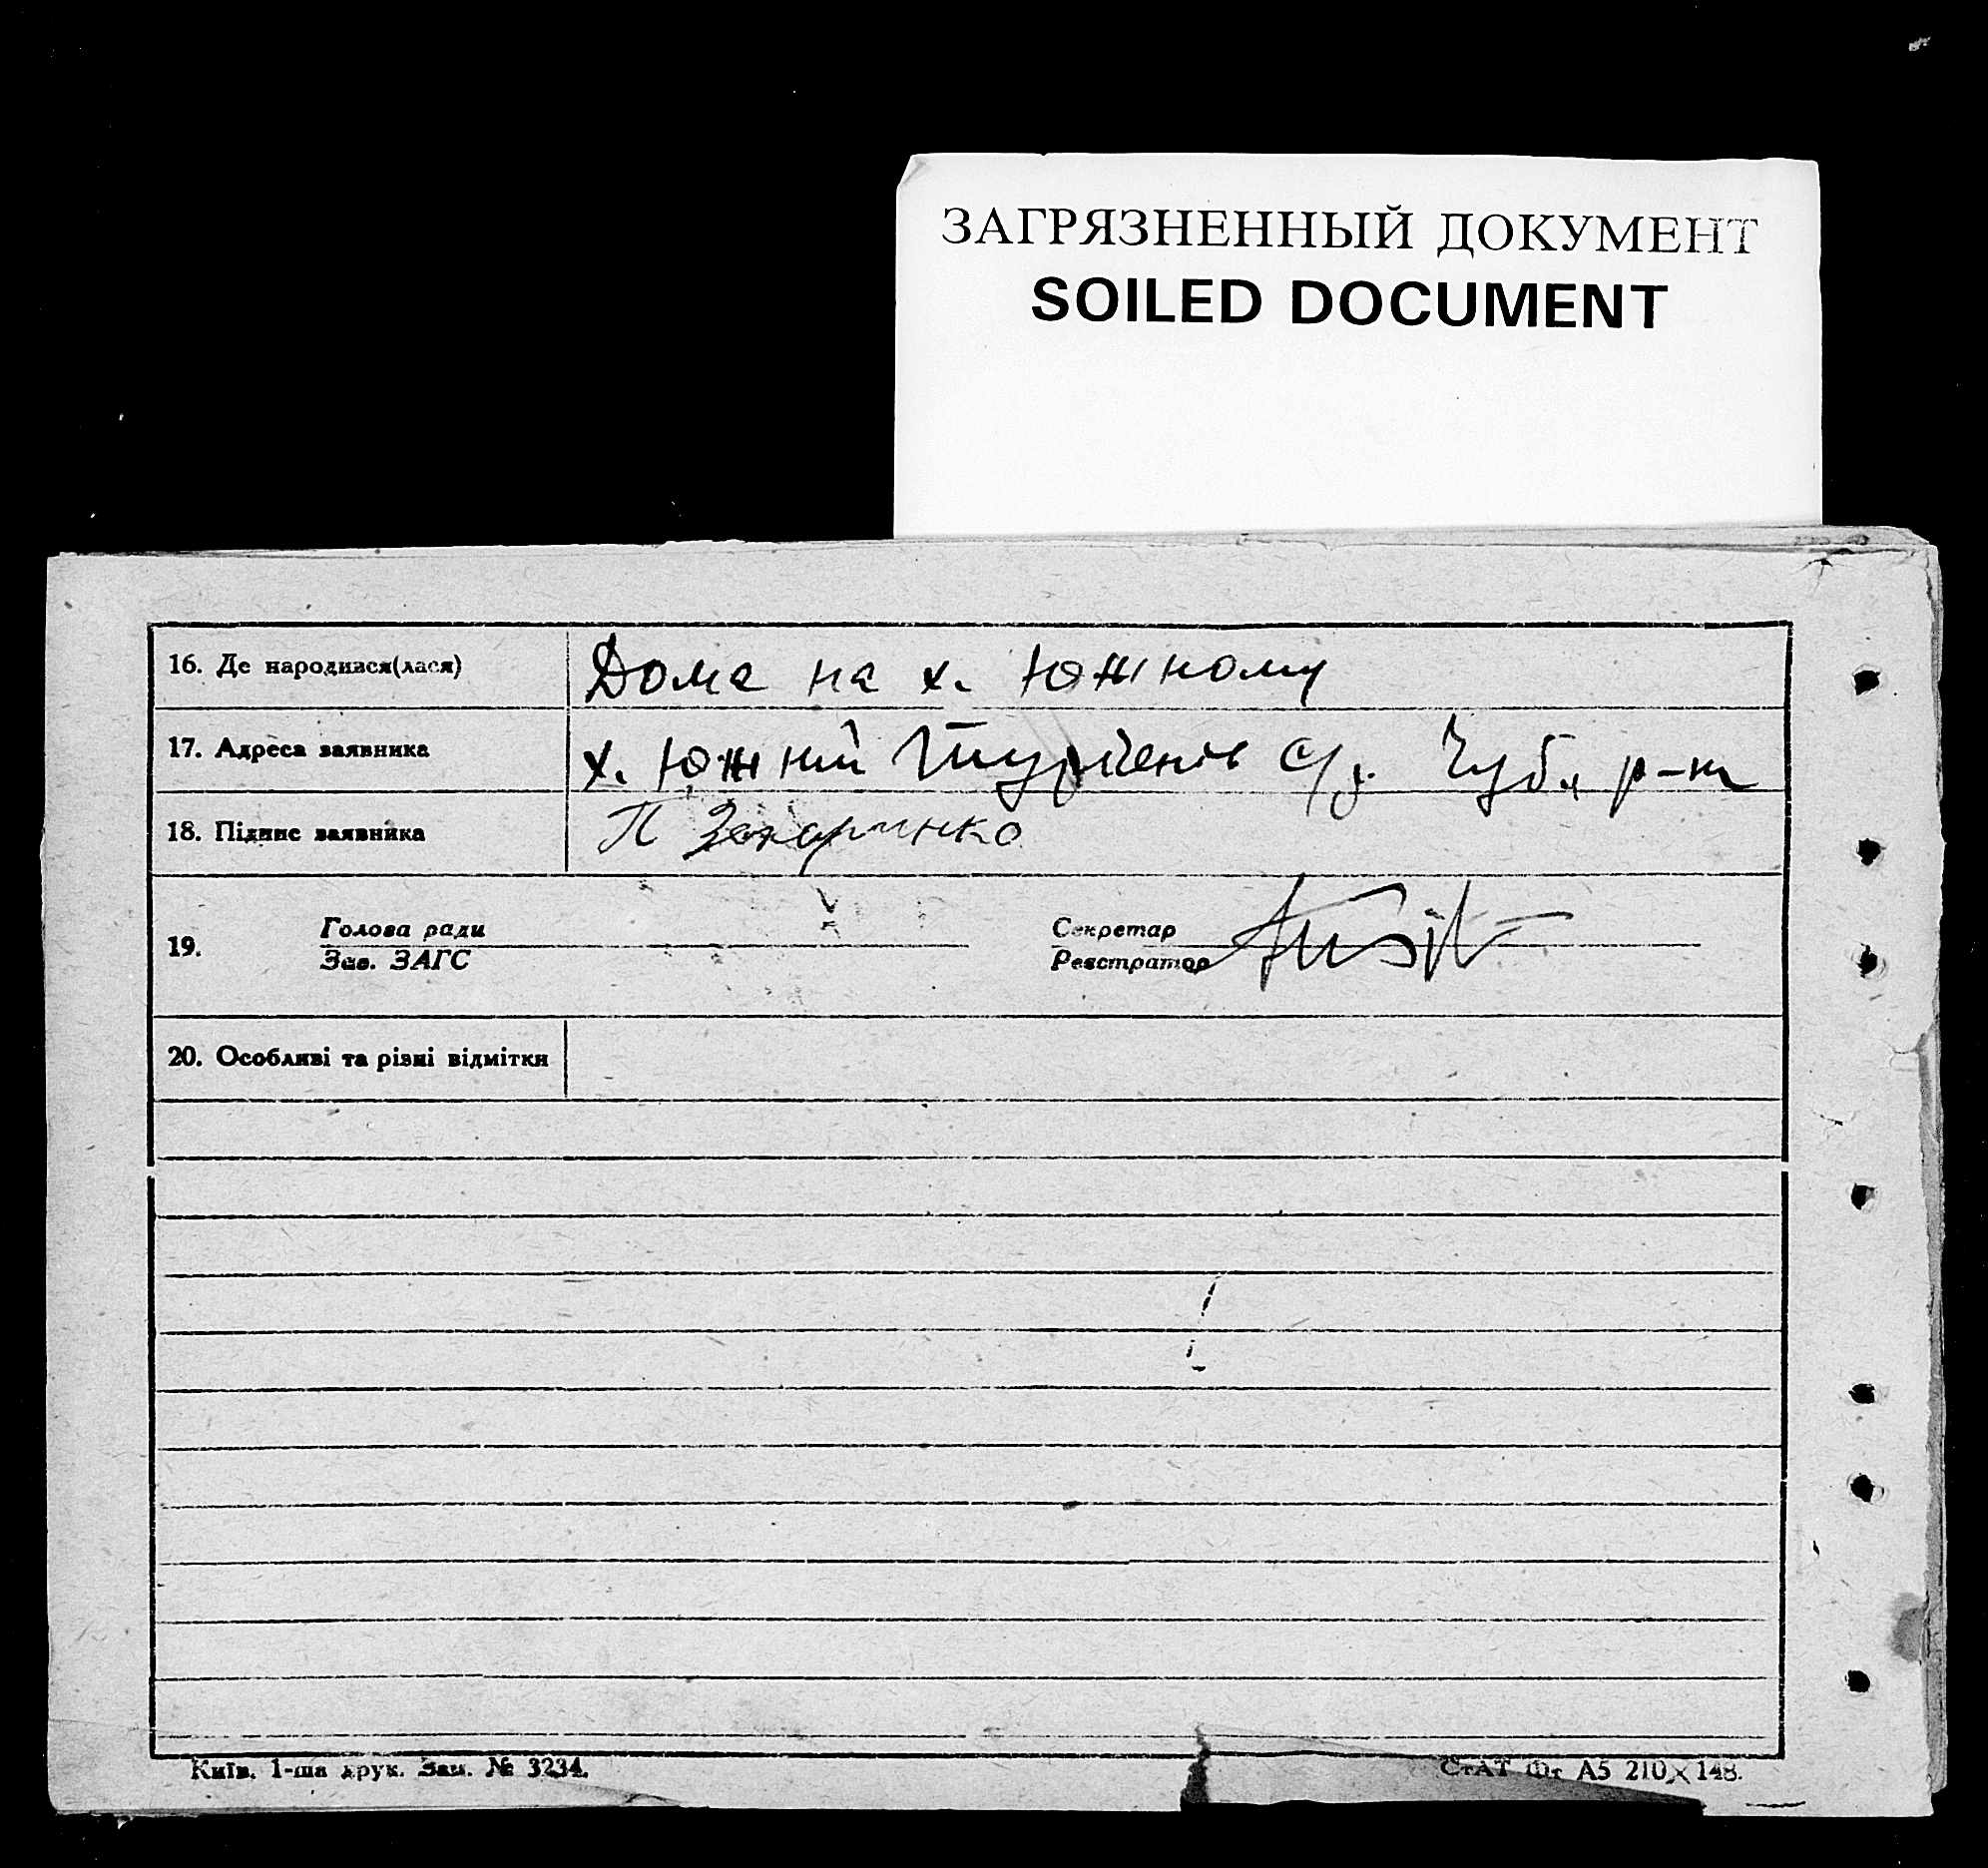 ЗАГРЯЗНЕННЫЙ ДОКУМЕНТ
SOILED DOCUMENT
16. Де народився(лася) Дома на х. Южному
17. Адреса заявника х. Южний с/р. Чуб. р-н
18. Підпис заявника П
19. Голова ради
Зав. ЗАГС
Секретар
Реєстратор
20. Особливі та різні відмітки
Київ. 1-ша друк. Зам. № 3234.
СтАТ Фт А5 210×148.